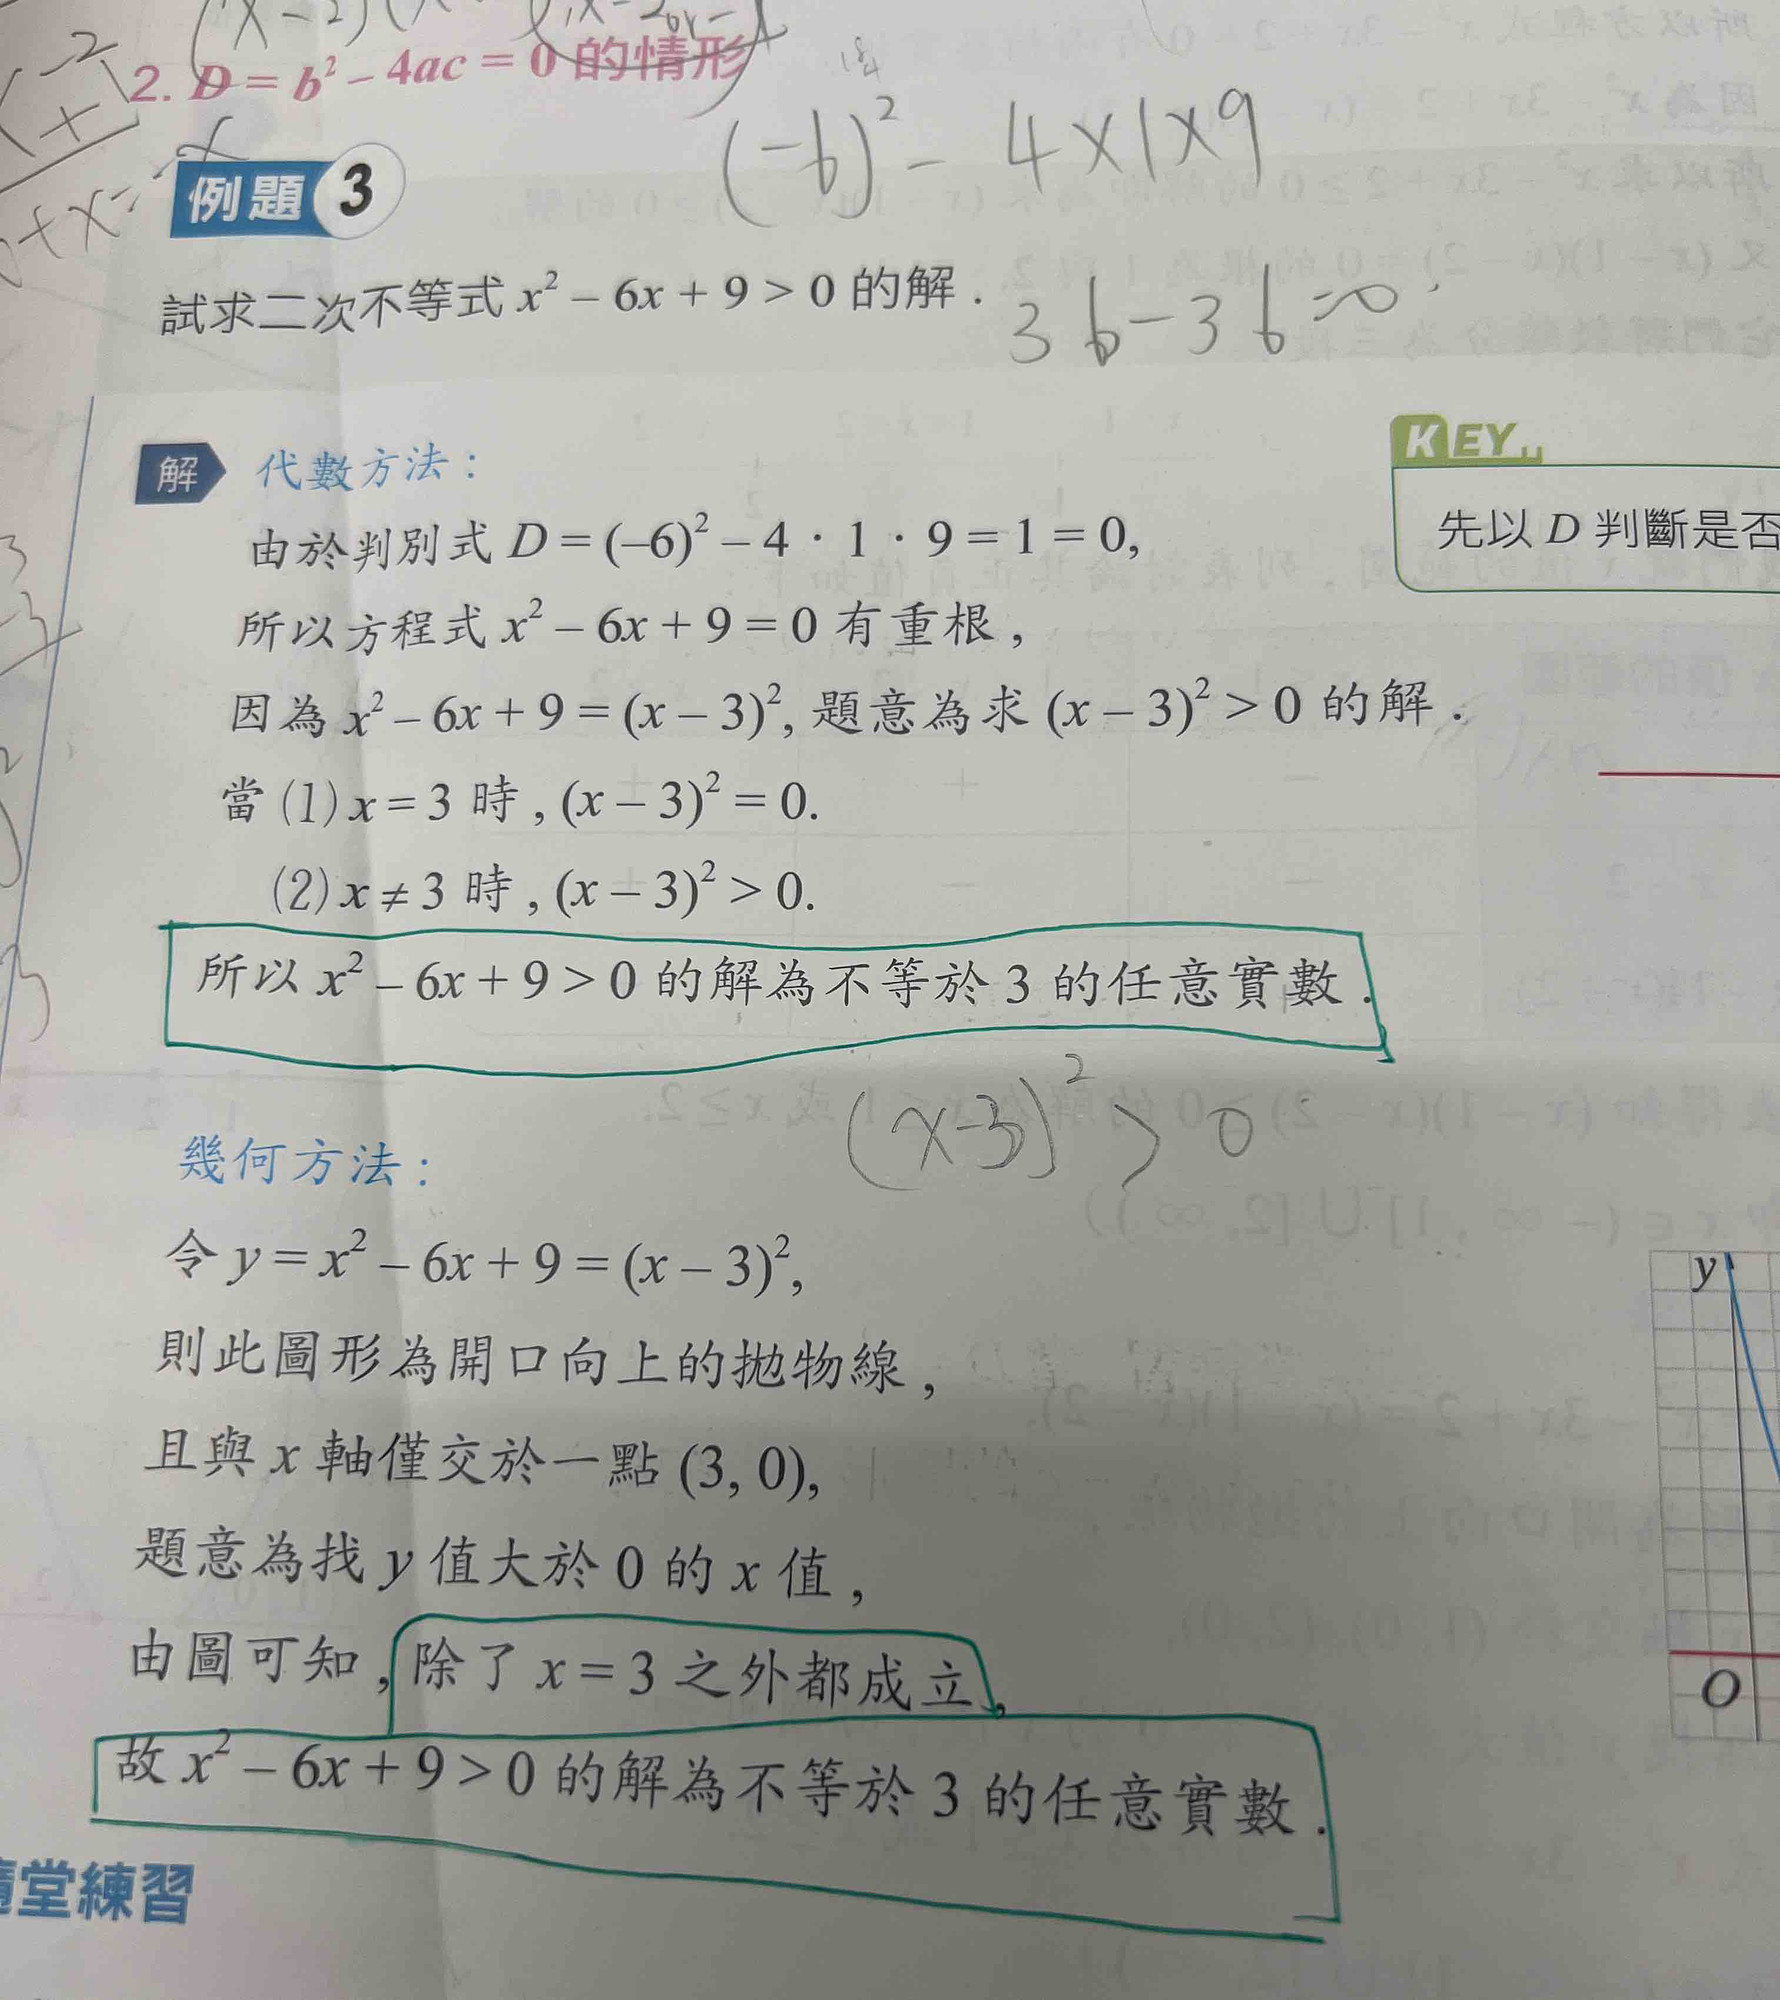 2. D = b² – 4ac = 0 的情形
(–6)² – 4×1×9
例題 3
試求二次不等式 x² – 6x + 9 > 0 的解．
36–36=0
解 代數方法：
KEY
先以 D 判斷是否
由於判別式 D = (–6)² – 4．1．9 = 1 = 0,
所以方程式 x² – 6x + 9 = 0 有重根，
因為 x² – 6x + 9 = (x – 3)², 題意為求 (x – 3)² > 0 的解．
當 (1) x = 3 時, (x – 3)² = 0.
(2) x ≠ 3 時, (x – 3)² > 0.
所以 x² – 6x + 9 > 0 的解為不等於 3 的任意實數．
(x–3)² > 0
幾何方法：
令 y = x² – 6x + 9 = (x – 3)²,
則此圖形為開口向上的拋物線，
且與 x 軸僅交於一點 (3, 0),
題意為找 y 值大於 0 的 x 值，
由圖可知，除了 x = 3 之外都成立，
故 x² – 6x + 9 > 0 的解為不等於 3 的任意實數．
y
O
隨堂練習